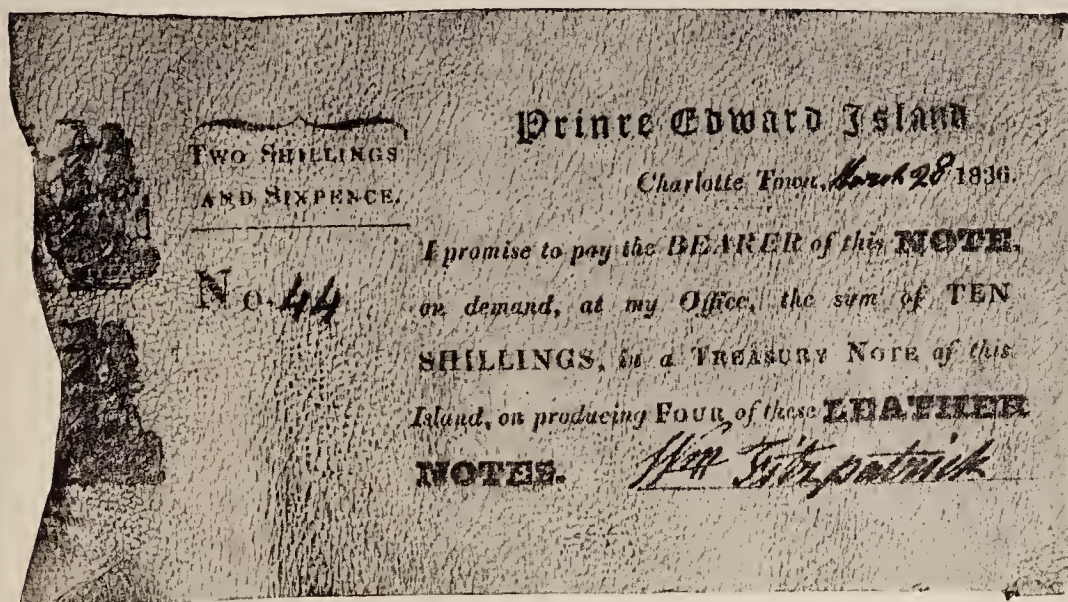 TWO SHILLINGS
AND SIXPENCE.
No. 44
Prince Edward Island
Charlotte Town, March 28 1836.
I promise to pay the BEARER of this NOTE,
on demand, at my Office, the sum of TEN
SHILLINGS, in a TREASURY NOTE of this
Island, on producing FOUR of these LEATHER
NOTES. Wm Fitzpatrick